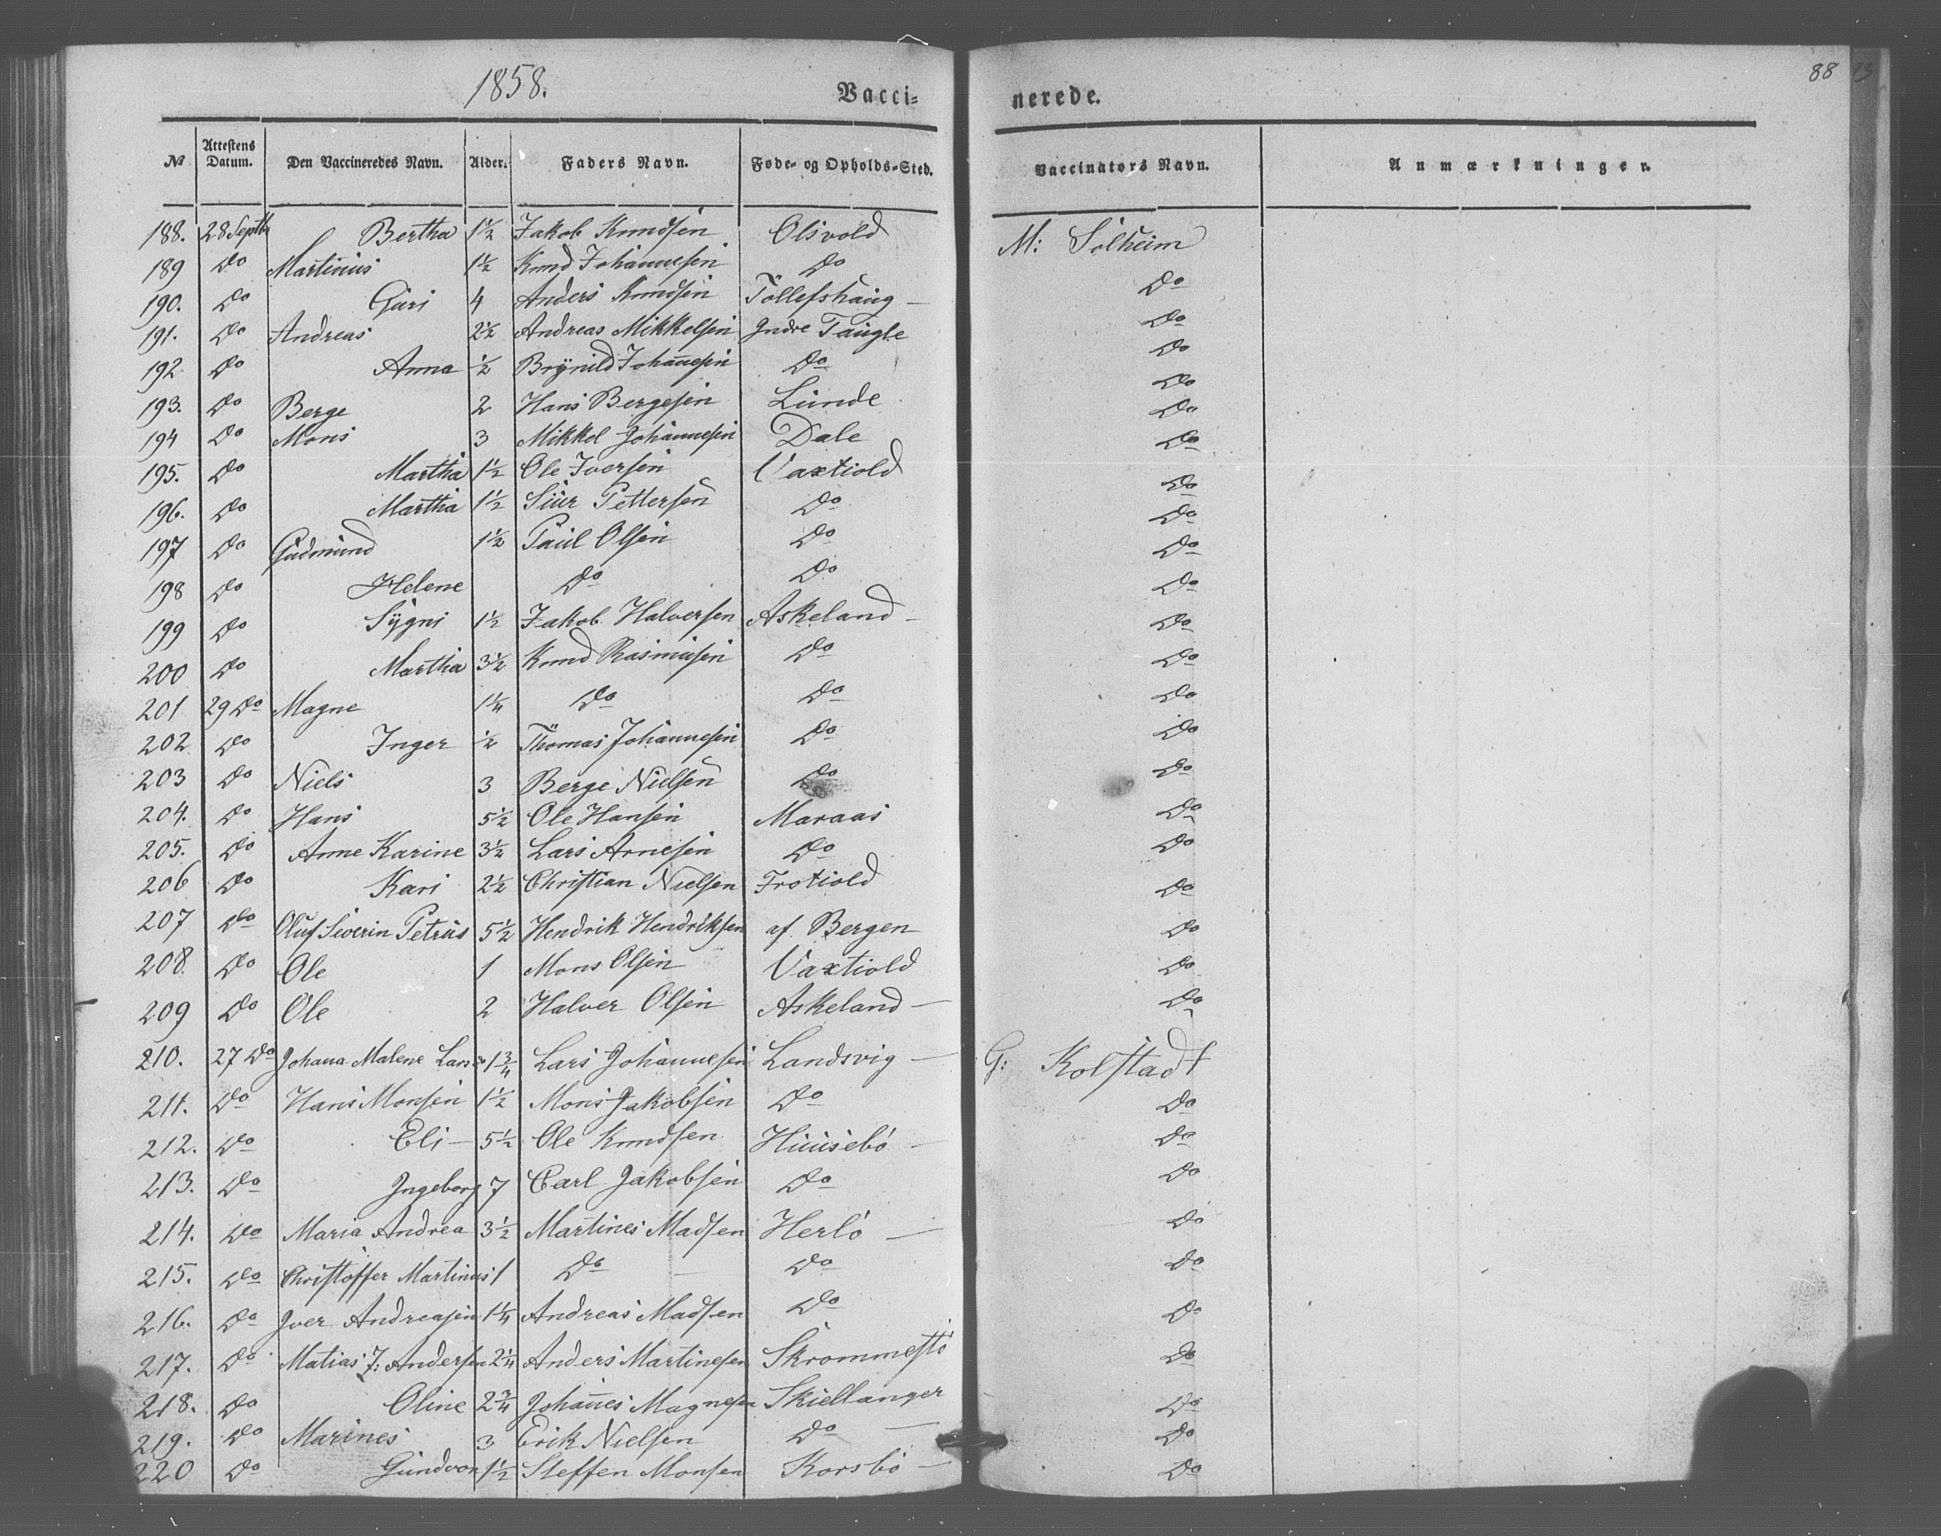 1858.
Vacci= nerede.
88
№ Attestens Datum. Den Vaccineredes Navn. Alder. Faders Navn. Føde- og Opholds-Sted. Vaccinators Navn. Anmærkninger.
188. 28 Septbr Bertha 1½ Jakob Knudsen Olsvold M: Solheim
189 Do Martinus 1½ Knud Johannesen Do Do
190. Do Guri 4 Anders Knudsen Tollefshaug — Do
191. Do Andreas 2½ Andreas Mikkelsen Indre Taugle Do
192 Do Anna ½ Brynild Johañesen Do Do
193. Do Berge 2 Hans Bergesen Lunde Do
194 Do Mons 3 Mikkel Johannesen Dale Do
195. Do Martha 1½ Ole Iversen Vaxtiold Do
196. Do Martha 1½ Siur Pettersen Do Do
197 Do Gudmund 1½ Paul Olsen Do Do
198 Do Helene Do Do Do
199 Do Sygni 1½ Jakob Halversen Askeland — Do
200 Do Martha 3½ Knud Rasmusen Do Do
201 29 Do Magne 1¼ Do Do Do
202 Do Inger ½ Thomas Johannesen Do Do
203 Do Niels 3 Berge Nielsen Do Do
204. Do Hans 5½ Ole Hansen Maraas Do
205. Do Anne Karine 3½ Lars Arnesen Do Do
206 Do Kari 2½ Christian Nielsen Frotiold Do
207 Do Oluf Siverin Petrus 5½ Hendrik Hendriksen af Bergen Do
208. Do Ole 1 Mons Olsen Vaxtiold Do
209 Do Ole 2 Halver Olsen Askeland — Do
210. 27 Do Johana Malene 1¾ Lars Johannesen Landsvig — G: Kolstadt
211. Do Hans Monsen 1½ Mons Jakobsen Do Do
212. Do Eli — 5½ Ole Knudsen Huusebø — Do
213. Do Ingeborg 7 Carl Jakobsen Do Do
214. Do Maria Andrea 3½ Martines Madsen Herlø — Do
215. Do Christoffer Martinus 1 Do — Do Do
216. Do Iver Andreasen 1¼ Andreas Madsen Do Do
217. Do Matias J: Andersen 2¼ Anders Martinesen Skrommestø Do
218. Do Oline 2¾ Johañes Magnesen Skiellanger Do
219. Do Marines 3 Erik Nielsen Do — Do
220 Do Gundvor 1½ Steffen Monsen Korsbø — Do